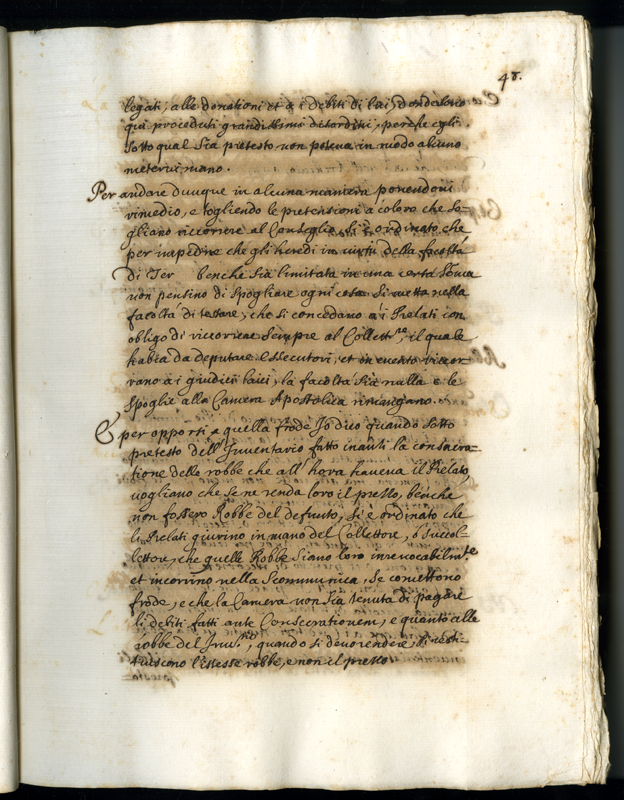 48.
legati; alle donationi et à i debiti di lui, donde sono
qui proceduti grandissimi disordini, perche egli
sotto qual sia pretesto non poteva in modo alcuno
metervi mano.
Per andare dunque in alcuna maniera ponendovi
rimedio, e togliendo le pretensioni à coloro che so-
gliano ricorrere al Conseglio, si è ordinato che
per impedire che gli heredi in virtù della facoltà
di Ter benche sia limitata in una certa somma
non pensino di spogliare ogni cosa si metta nella
facoltà di testare, che si concedano à i Prelati con
obligo di ricorrere sempre al Collett.re, il quale
habia da deputare essecutori, et in evento ricor-
rano à i giudicii laici, la facoltà sia nulla e le
spoglie alla Camera Apostolica rimangano.
E per opporsi a quella frode Jo dico quando sotto
pretesto dell' Inventario fatto inanti la consacra-
tione delle robbe che all' hora haveva il Prelato,
vogliano che se ne renda loro il prezzo, benche
non fossero Robbe del defunto, si è ordinato che
li Prelati giurino in mano del Collettore, ò succol-
lettore, che quelle Robbe siano loro irrevocabilm.te
et incorrino nella scommunica, se comettono
frode, e che la Camera non sia tenuta di pagare
li debiti fatti ante Consecrationem, e quanto alle
robbe del quando si
tuiscono l'istesse robbe, e non il prezzo